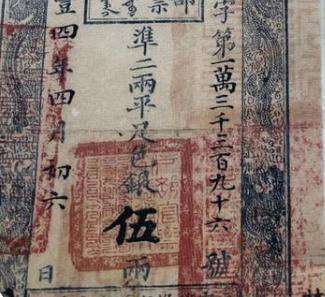 字第一萬三千三百九十六號
部
票
準二兩平足色銀伍兩
四年四月初六日